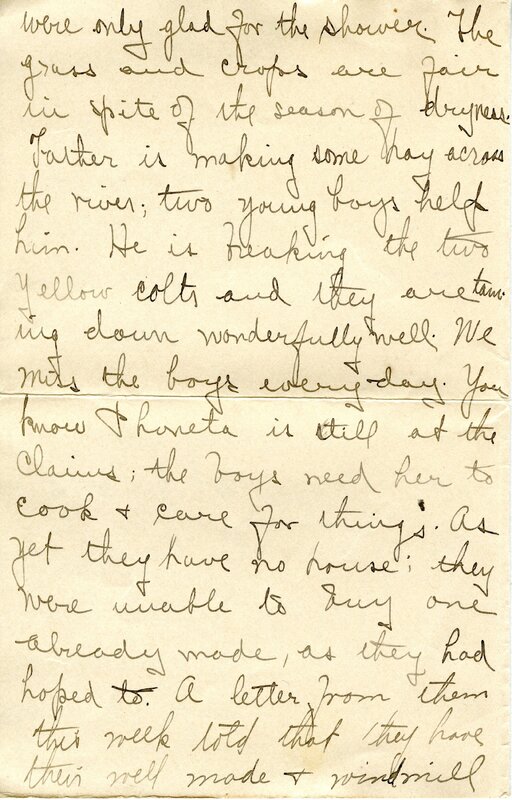 were only glad for the shower. The
grass and crops are fair
in spite of the season of dryness.
Father is making some hay across
the river; two young boys help
him. He is breaking the two
yellow colts and they are tam-
ing down wonderfully well. We
miss the boys every day. You
know Thoneta is still at the
Claims; the boys need her to
cook & care for things. As
yet they have no house; they
were unable to buy one
already made, as they had
hoped to. A letter from them
this week told that they have
their well made & windmill